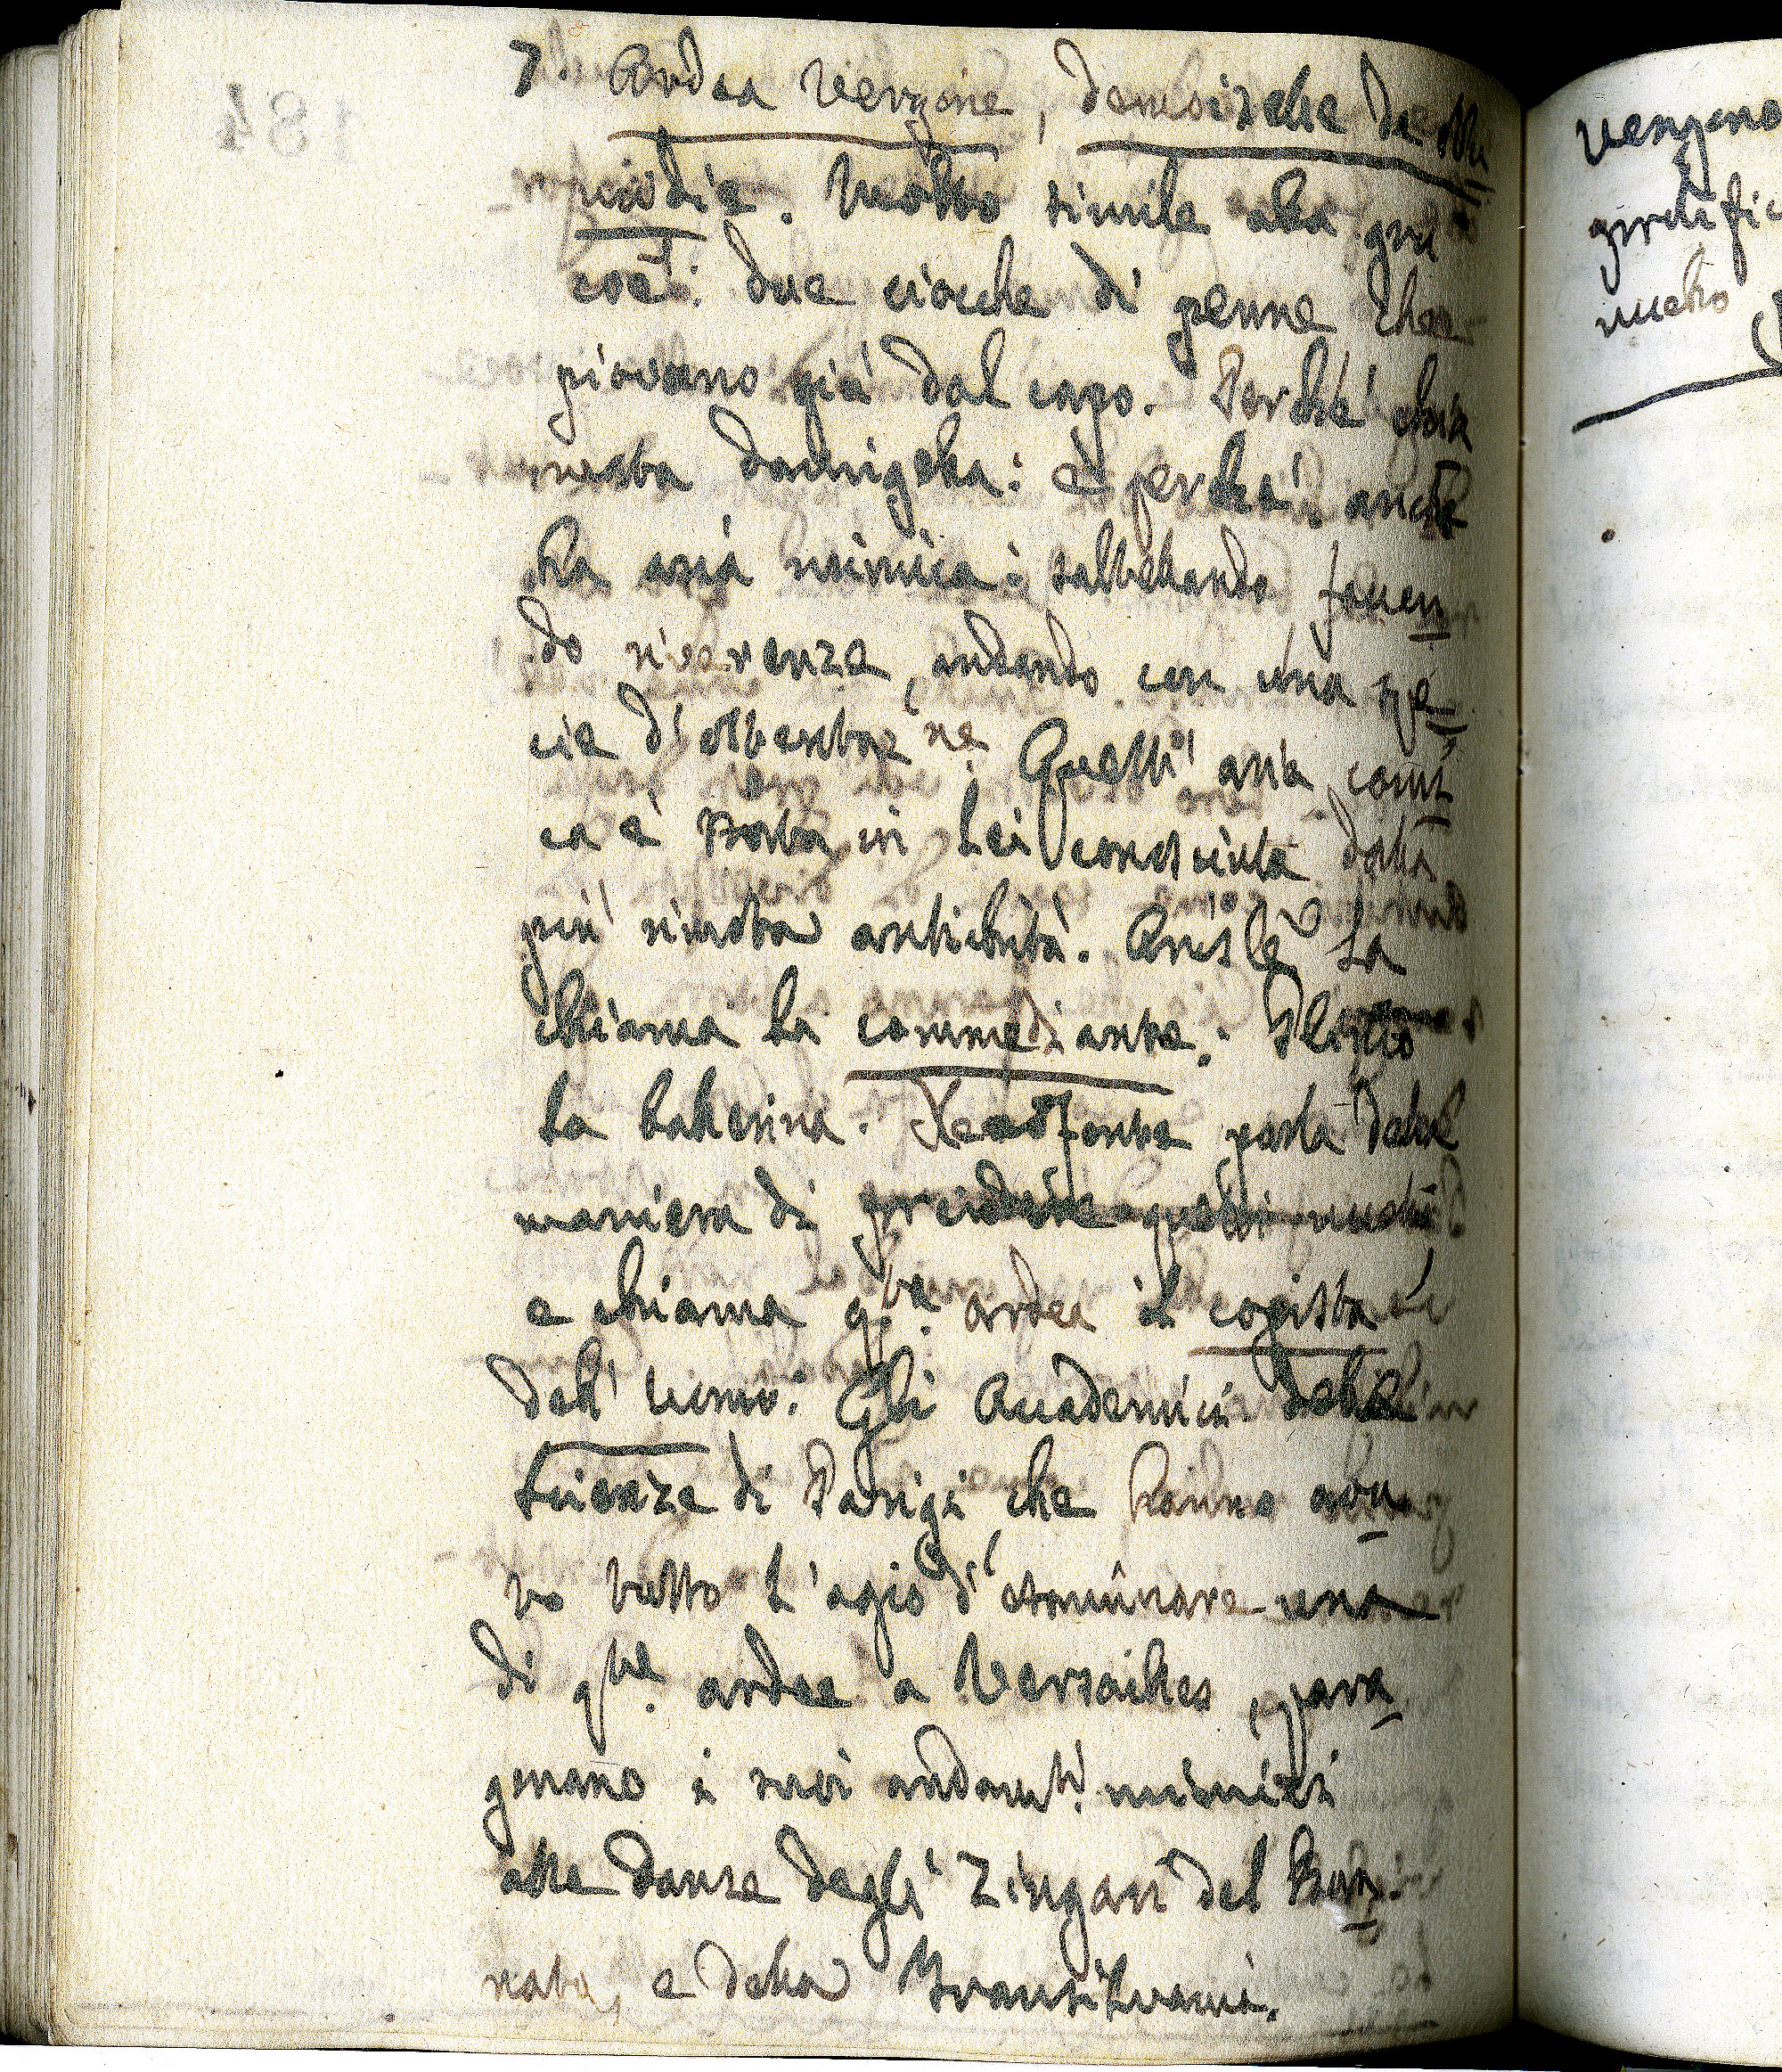 7. Ardea Verzione, demoiselle de Nu
midie. Molto simile alla gru
coll: due ciocche di penne che
piovono giù dal capo. Perché chia
mata damigella: è perché anche
ha aria mimica: saltellando facen
do riverenze, andando con una spe
cie d'ostentaz.ne Quest' aria comi
ca è stata in lei conosciuta dalla
più rimota antichità. Arist.le La
chiama la commediante: Plinio
la ballerina. Xenofonte parla della
maniera di
e chiama q.ta ardea il copista
dell' uomo. Gli Accademici delle
Scienze di Parigi che hanno avu
to tutto l'agio d'esaminare una
di q.te ardee a Versailles, para
gonano i suoi andam.ti mimici
alle danze degli Zingari del Ban
nato, e della Transilvania.
184
vengono
grulific
nuello